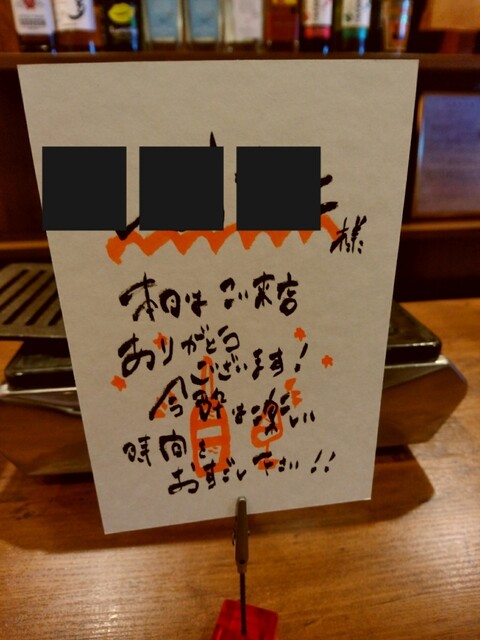 様
本日はご来店
ありがとう
ございます!
今酔は楽しい
時間を
おすごし下さい!!